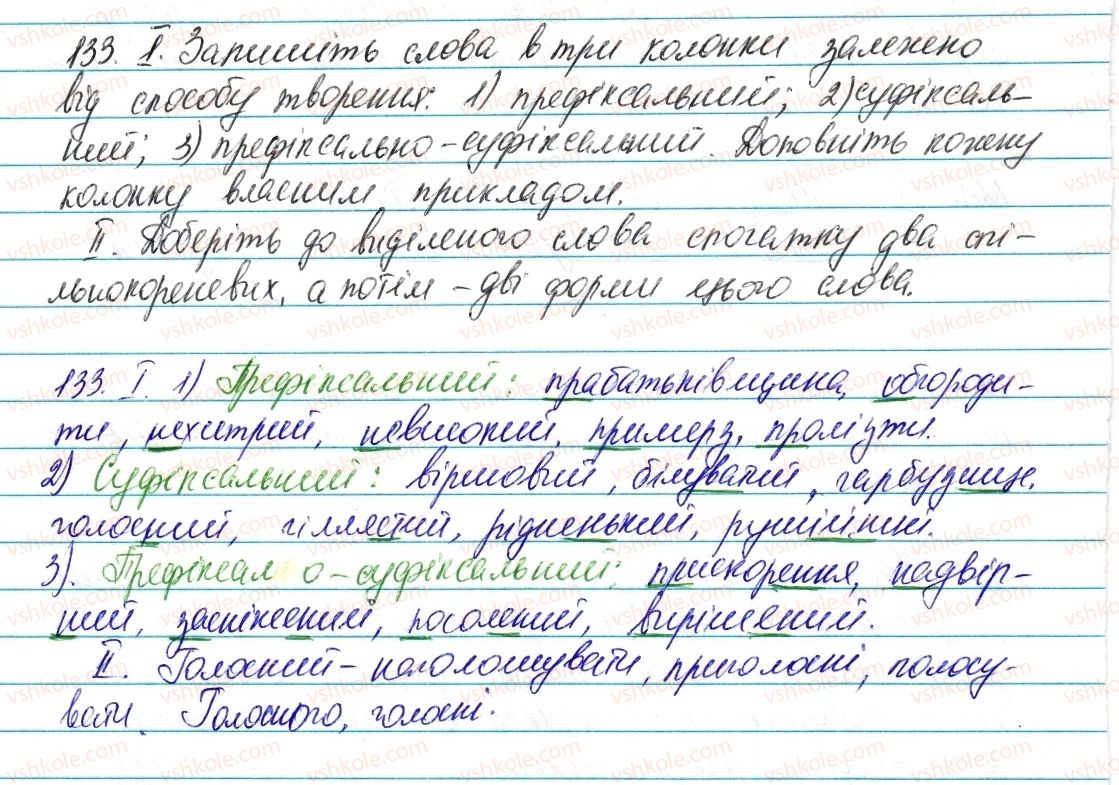 133. І. Запишіть слова в три колонки залежно
від способу творення: 1) префіксальний; 2) суфіксаль-
ний; 3) префіксально-суфіксальний. Доповніть кожну
колонку власним прикладом.
ІІ. Доберіть до виділеного слова спочатку два спі-
льнокореневих, а потім – дві форми цього слова.
133. І. 1) Префіксальний: прабатьківщина, обгороди-
ти, нехитрий, невисокий, примерз, пролізти.
2) Суфіксальний: віршовий, білуватий, гарбузище,
голосний, гіллястий, рідненький, рушійний.
3). Префіксал о-суфіксальний: прискорення, надвір-
ний, засніжений, посолений, вирішений.
ІІ. Голосний – наголошувати, приголосні, голосу-
вати. Голосного, голосні.